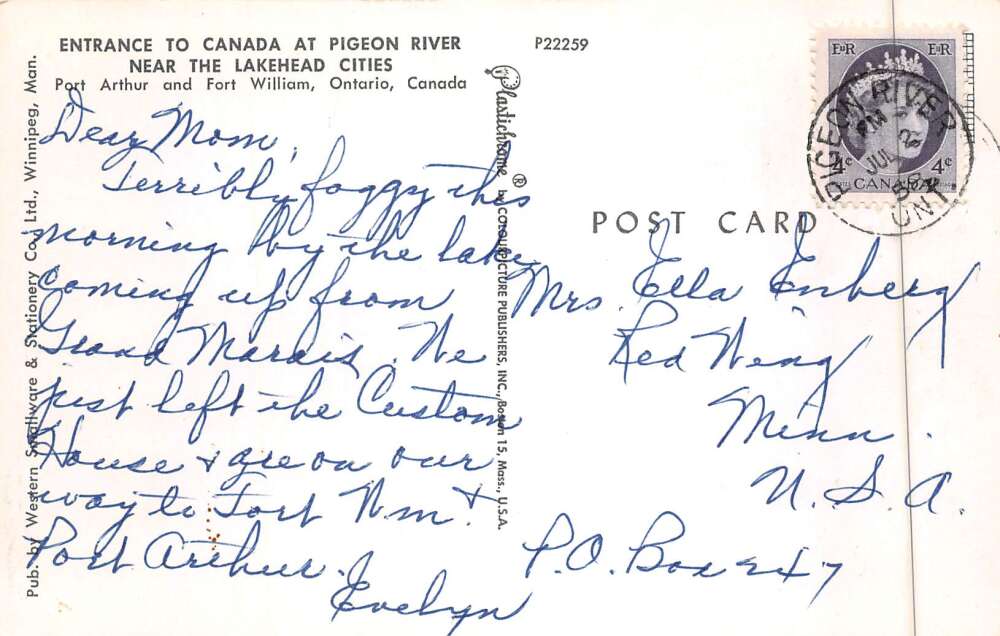 ENTRANCE TO CANADA AT PIGEON RIVER
NEAR THE LAKEHEAD CITIES
Port Arthur and Fort William, Ontario, Canada
P22259
Dear Mom,
Terribly foggy this
morning by the lake
coming up from
Grand Marais. We
just left the Custom
House & are on our
way to Fort Wm. &
Port Arthur.
Evelyn
Pub. by Western Smallware & Stationery Co., Ltd., Winnipeg, Man.
Plastichrome ® by COLOURPICTURE PUBLISHERS, INC., Boston 15, Mass., U.S.A.
POST CARD
Mrs. Ella Enberg
Red Wing
Minn.
U.S.A.
P.O. Box 247
E II R E II R
4¢ 4¢
CANADA
PIGEON RIVER
PM
JUL
58
ONT